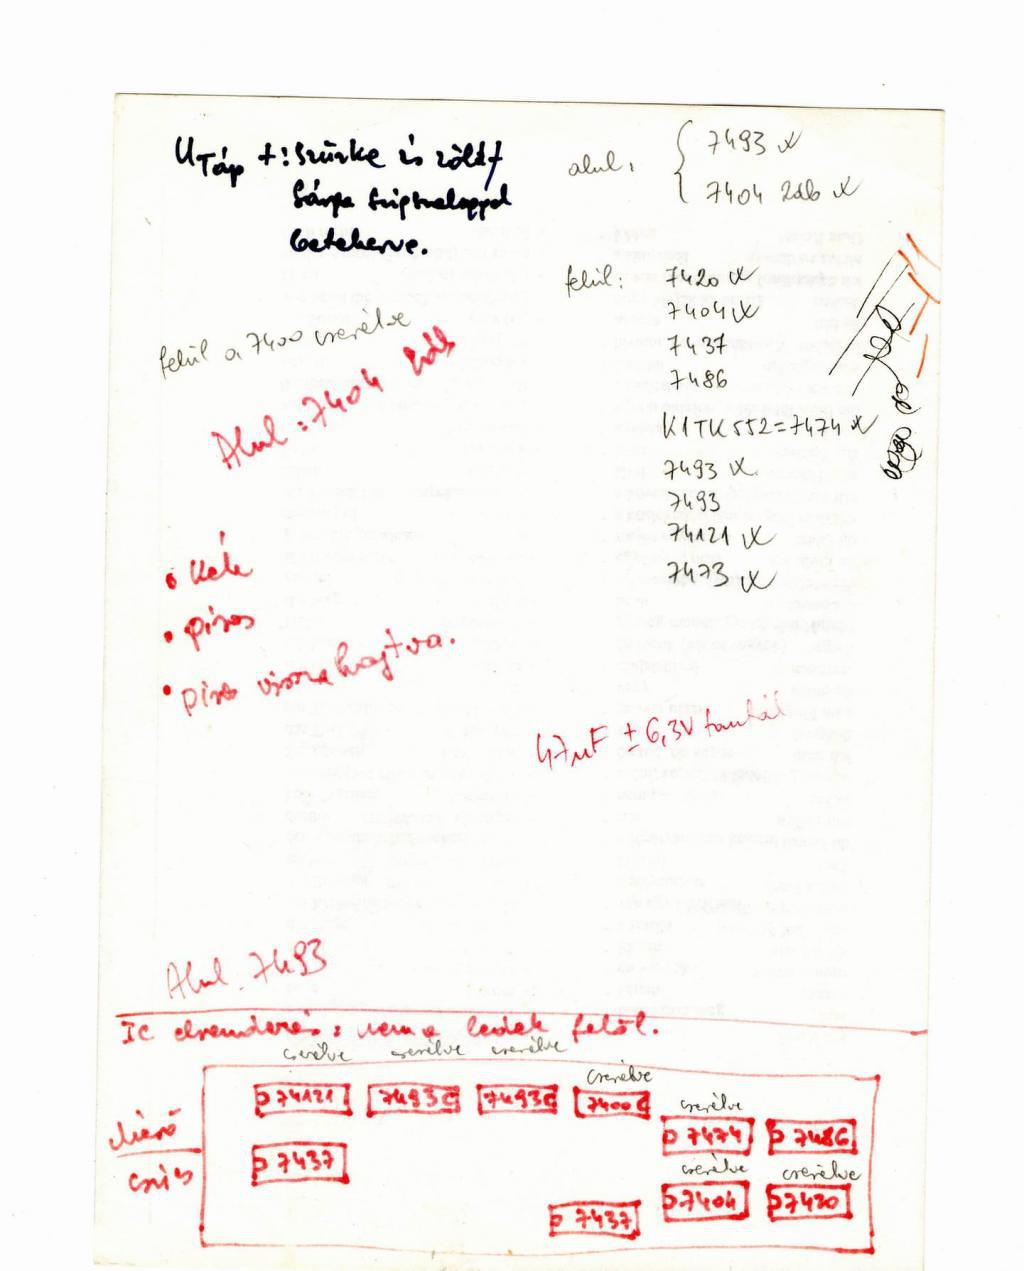 UTáp +: szürke és zöld/
Sárga szigszalaggal
betekerve.
alul: 7493 x
7404 2db x
felül: 7420 x
7404 x
7437
7486
K1TK552=7474 x
7493 x
7493
74121 x
7473 x
felül a 7400 cserélve
Alul: 7404 2db
• kék
• piros
• piros visszahajtva.
47µF ± 6,3V tantál
Alul. 7493
IC elrendezés: nem a ledek felől.
cserélve cserélve cserélve
cserélve
74121 7493 7493 7400
cserélve
7474 7486
7437
cserélve cserélve
7404 7430
7437